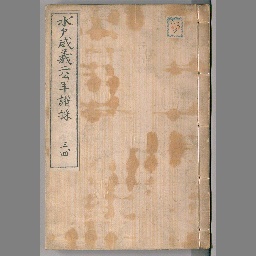 水戸威義二公年譜録
三四